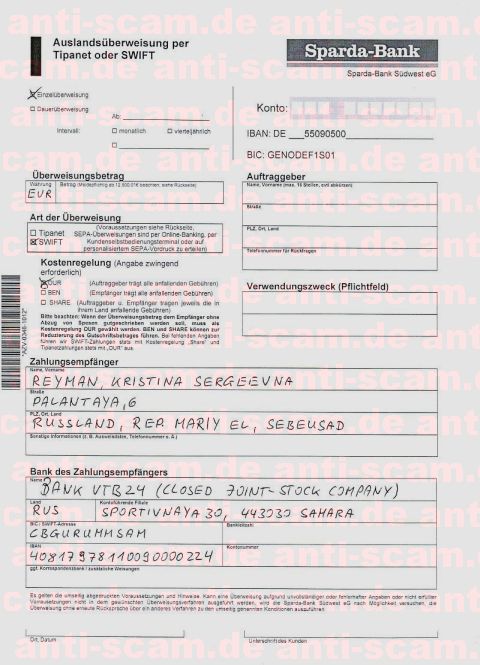 Auslandsüberweisung per
Tipanet oder SWIFT
Sparda-Bank
Sparda-Bank Südwest eG
Einzelüberweisung
Dauerüberweisung
Ab:
Intervall: monatlich vierteljährlich
Konto:
IBAN: DE ___55090500
BIC: GENODEF1S01
Überweisungsbetrag
Währung Betrag (Meldepflichtig ab 12.500,01€ beachten, siehe Rückseite)
EUR
Art der Überweisung
Tipanet
SWIFT
(Voraussetzungen siehe Rückseite,
SEPA-Überweisungen sind per Online-Banking, per
Kundenselbstbedienungsterminal oder auf
personalisiertem SEPA-Vordruck zu erteilen)
Kostenregelung (Angabe zwingend
erforderlich)
OUR (Auftraggeber trägt alle anfallenden Gebühren)
BEN (Empfänger trägt alle anfallenden Gebühren)
SHARE (Auftraggeber u. Empfänger tragen jeweils die in
ihrem Land anfallende Gebühren)
Bitte beachten: Wenn der Überweisungsbetrag dem Empfänger ohne
Abzug von Spesen gutgeschrieben werden soll, muss als
Kostenregelung OUR gewählt werden. BEN und SHARE können zur
Reduzierung des Gutschriftsbetrages führen. Bei fehlenden Angaben
führen wir SWIFT-Zahlungen stets mit Kostenregelung „Share" und
Tipanetzahlungen stets mit „OUR" aus.
Auftraggeber
Name, Vorname (max. 16 Stellen, evtl abkürzen)
Straße
PLZ, Ort, Land
Telefonnummer für Rückfragen
Verwendungszweck (Pflichtfeld)
Zahlungsempfänger
Name, Vorname
REYMAN, KRISTINA SERGEEVNA
Straße
PALANTAYA, 6
PLZ, Ort, Land
RUSSLAND, REP. MARIY EL, SEBEUSAD
Sonstige Informationen (z. B. Ausweisdaten, Telefonnummer o. Ä.)
Bank des Zahlungsempfängers
Name
BANK VTB24 (CLOSED JOINT-STOCK COMPANY)
Land Kontoführende Filiale
RUS SPORTIVNAYA 30, 443030 SAMARA
BIC / SWIFT-Adresse Bankleitzahl
CBGURUMMSAM
IBAN Kontonummer
40817978110090000224
ggf. Korrespondenzbank / zusätzliche Weisungen
Es gelten die umseitig abgedruckten Voraussetzungen und Hinweise. Kann eine Überweisung aufgrund unvollständiger oder fehlerhafter Angaben oder nicht erfüllter
Voraussetzungen nicht in dem gewünschten Überweisungsverfahren ausgeführt werden, wird die Sparda-Bank Südwest eG nach Möglichkeit versuchen, die
Überweisung ohne erneute Rücksprache über ein anderes Verfahren zu den umseitig genannten Konditionen auszuführen.
Ort, Datum
Unterschrift des Kunden
anti-scam.de